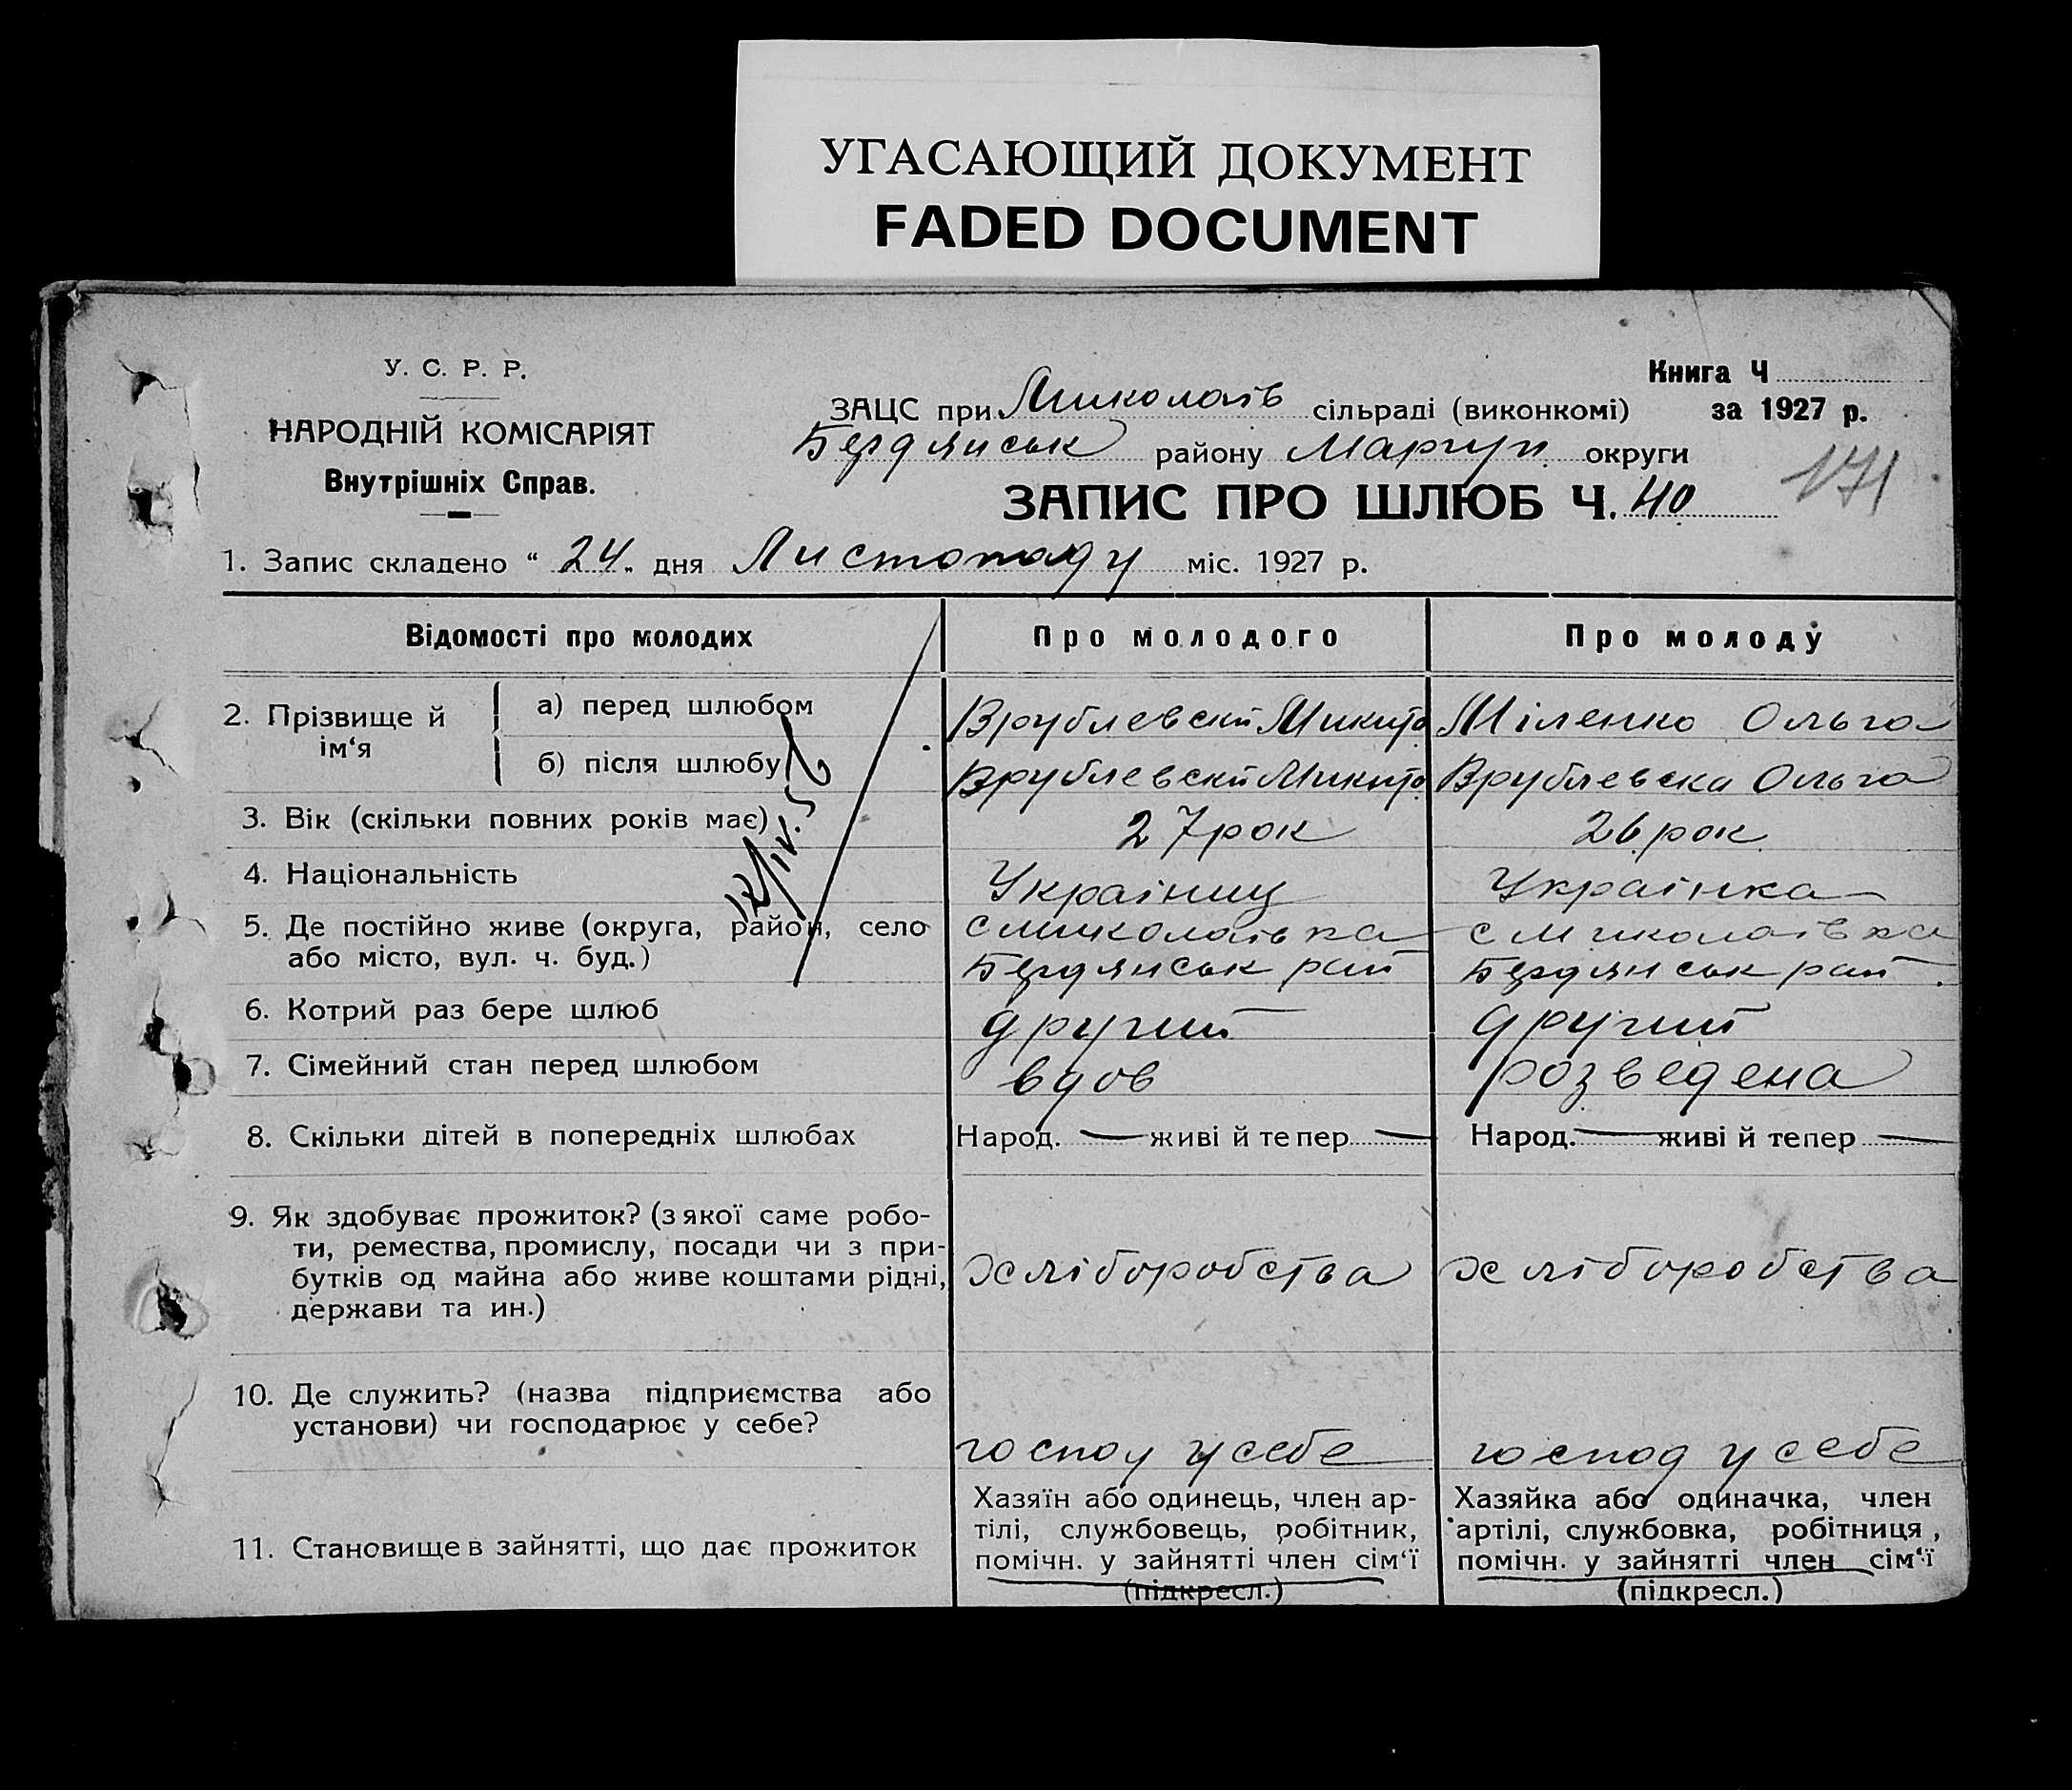 УГАСАЮЩИЙ ДОКУМЕНТ
FADED DOCUMENT
У. С. Р. Р.
НАРОДНІЙ КОМІСАРІЯТ
Внутрішніх Справ.
Книга Ч
за 1927 р.
ЗАЦС при Миколаїв сільраді (виконкомі)
Бердянськ району Маріуп. округи
171
ЗАПИС ПРО ШЛЮБ Ч. 40
1. Запис складено “ 24 „ дня Листопаду міс. 1927 р.
Відомості про молодих
Про молодого
Про молоду
2. Прізвище й ім‘я
а) перед шлюбом
Врублевскй Микита
Міленко Ольга
б) після шлюбу
Врублевскй Микита
Врублевска Ольга
3. Вік (скільки повних років має)
27 рок
26 рок
4. Національність
Українц
Українка
5. Де постійно живе (округа, район, село
або місто, вул. ч. буд.)
с Миколаївка
Бердянськ рай
с Миколаївка
Бердянськ рай.
6. Котрий раз бере шлюб
другий
другий
7. Сімейний стан перед шлюбом
вдов
розведена
8. Скільки дітей в попередніх шлюбах
Народ. — живі й тепер —
Народ. — живі й тепер —
9. Як здобуває прожиток? (з якої саме робо-
ти, ремества, промислу, посади чи з при-
бутків од майна або живе коштами рідні,
держави та ин.)
хліборобства
хліборобства
10. Де служить? (назва підприємства або
установи) чи господарює у себе?
господ у себе
господ у себе
11. Становище в зайнятті, що дає прожиток
Хазяїн або одинець, член ар-
тілі, службовець, робітник,
помічн. у зайнятті член сім‘ї
(підкресл.)
Хазяйка або одиначка, член
артілі, службовка, робітниця,
помічн. у зайнятті член сім‘ї
(підкресл.)